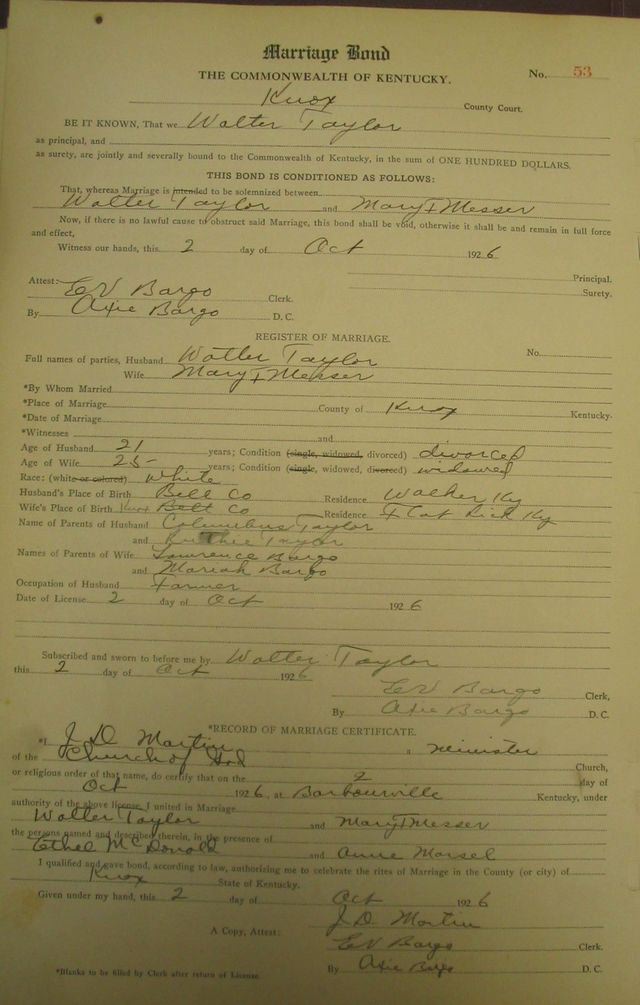 Marriage Bond
THE COMMONWEALTH OF KENTUCKY. No. 53
Knox County Court.
BE IT KNOWN, That we Walter Taylor
as principal, and
as surety, are jointly and severally bound to the Commonwealth of Kentucky, in the sum of ONE HUNDRED DOLLARS.
THIS BOND IS CONDITIONED AS FOLLOWS:
That, whereas Marriage is intended to be solemnized between
Walter Taylor and Mary Messer
Now, if there is no lawful cause to obstruct said Marriage, this bond shall be void, otherwise it shall be and remain in full force
and effect,
Witness our hands, this 2 day of Oct 1926
Principal.
Surety.
Attest: EV Bargo Clerk.
By Axie Bargo D. C.
REGISTER OF MARRIAGE.
Full names of parties, Husband Walter Taylor No.
Wife Mary Messer
*By Whom Married
*Place of Marriage County of Knox Kentucky.
*Date of Marriage
*Witnesses and
Age of Husband 21 years; Condition (single, widowed, divorced) divorced
Age of Wife 25 years; Condition (single, widowed, divorced) widowed
Race: (white or colored) White
Husband's Place of Birth Bell Co Residence Walker Ky
Wife's Place of Birth Knox Bell Co Residence Flat Lick Ky
Name of Parents of Husband Columbus Taylor
and Ruthie Taylor
Names of Parents of Wife Lawrence Bargo
and Mariah Bargo
Occupation of Husband Farmer
Date of License 2 day of Oct 1926
Subscribed and sworn to before me by Walter Taylor
this 2 day of Oct 1926
EV Bargo Clerk,
By Axie Bargo D. C.
*RECORD OF MARRIAGE CERTIFICATE.
*I J. D. Martin a minister
of the Church of God Church,
or religious order of that name, do certify that on the 2 day of
Oct 1926, at Barbourville Kentucky, under
authority of the above license, I united in Marriage
Walter Taylor and Mary Messer
the persons named and described therein, in the presence of
Ethel McDonald and Anne
I qualified and gave bond, according to law, authorizing me to celebrate the rites of Marriage in the County (or city) of
Knox State of Kentucky.
Given under my hand, this 2 day of Oct 1926
J. D. Martin
A Copy, Attest: EV Bargo Clerk.
*Blanks to be filled by Clerk after return of License. By Axie Bargo D. C.